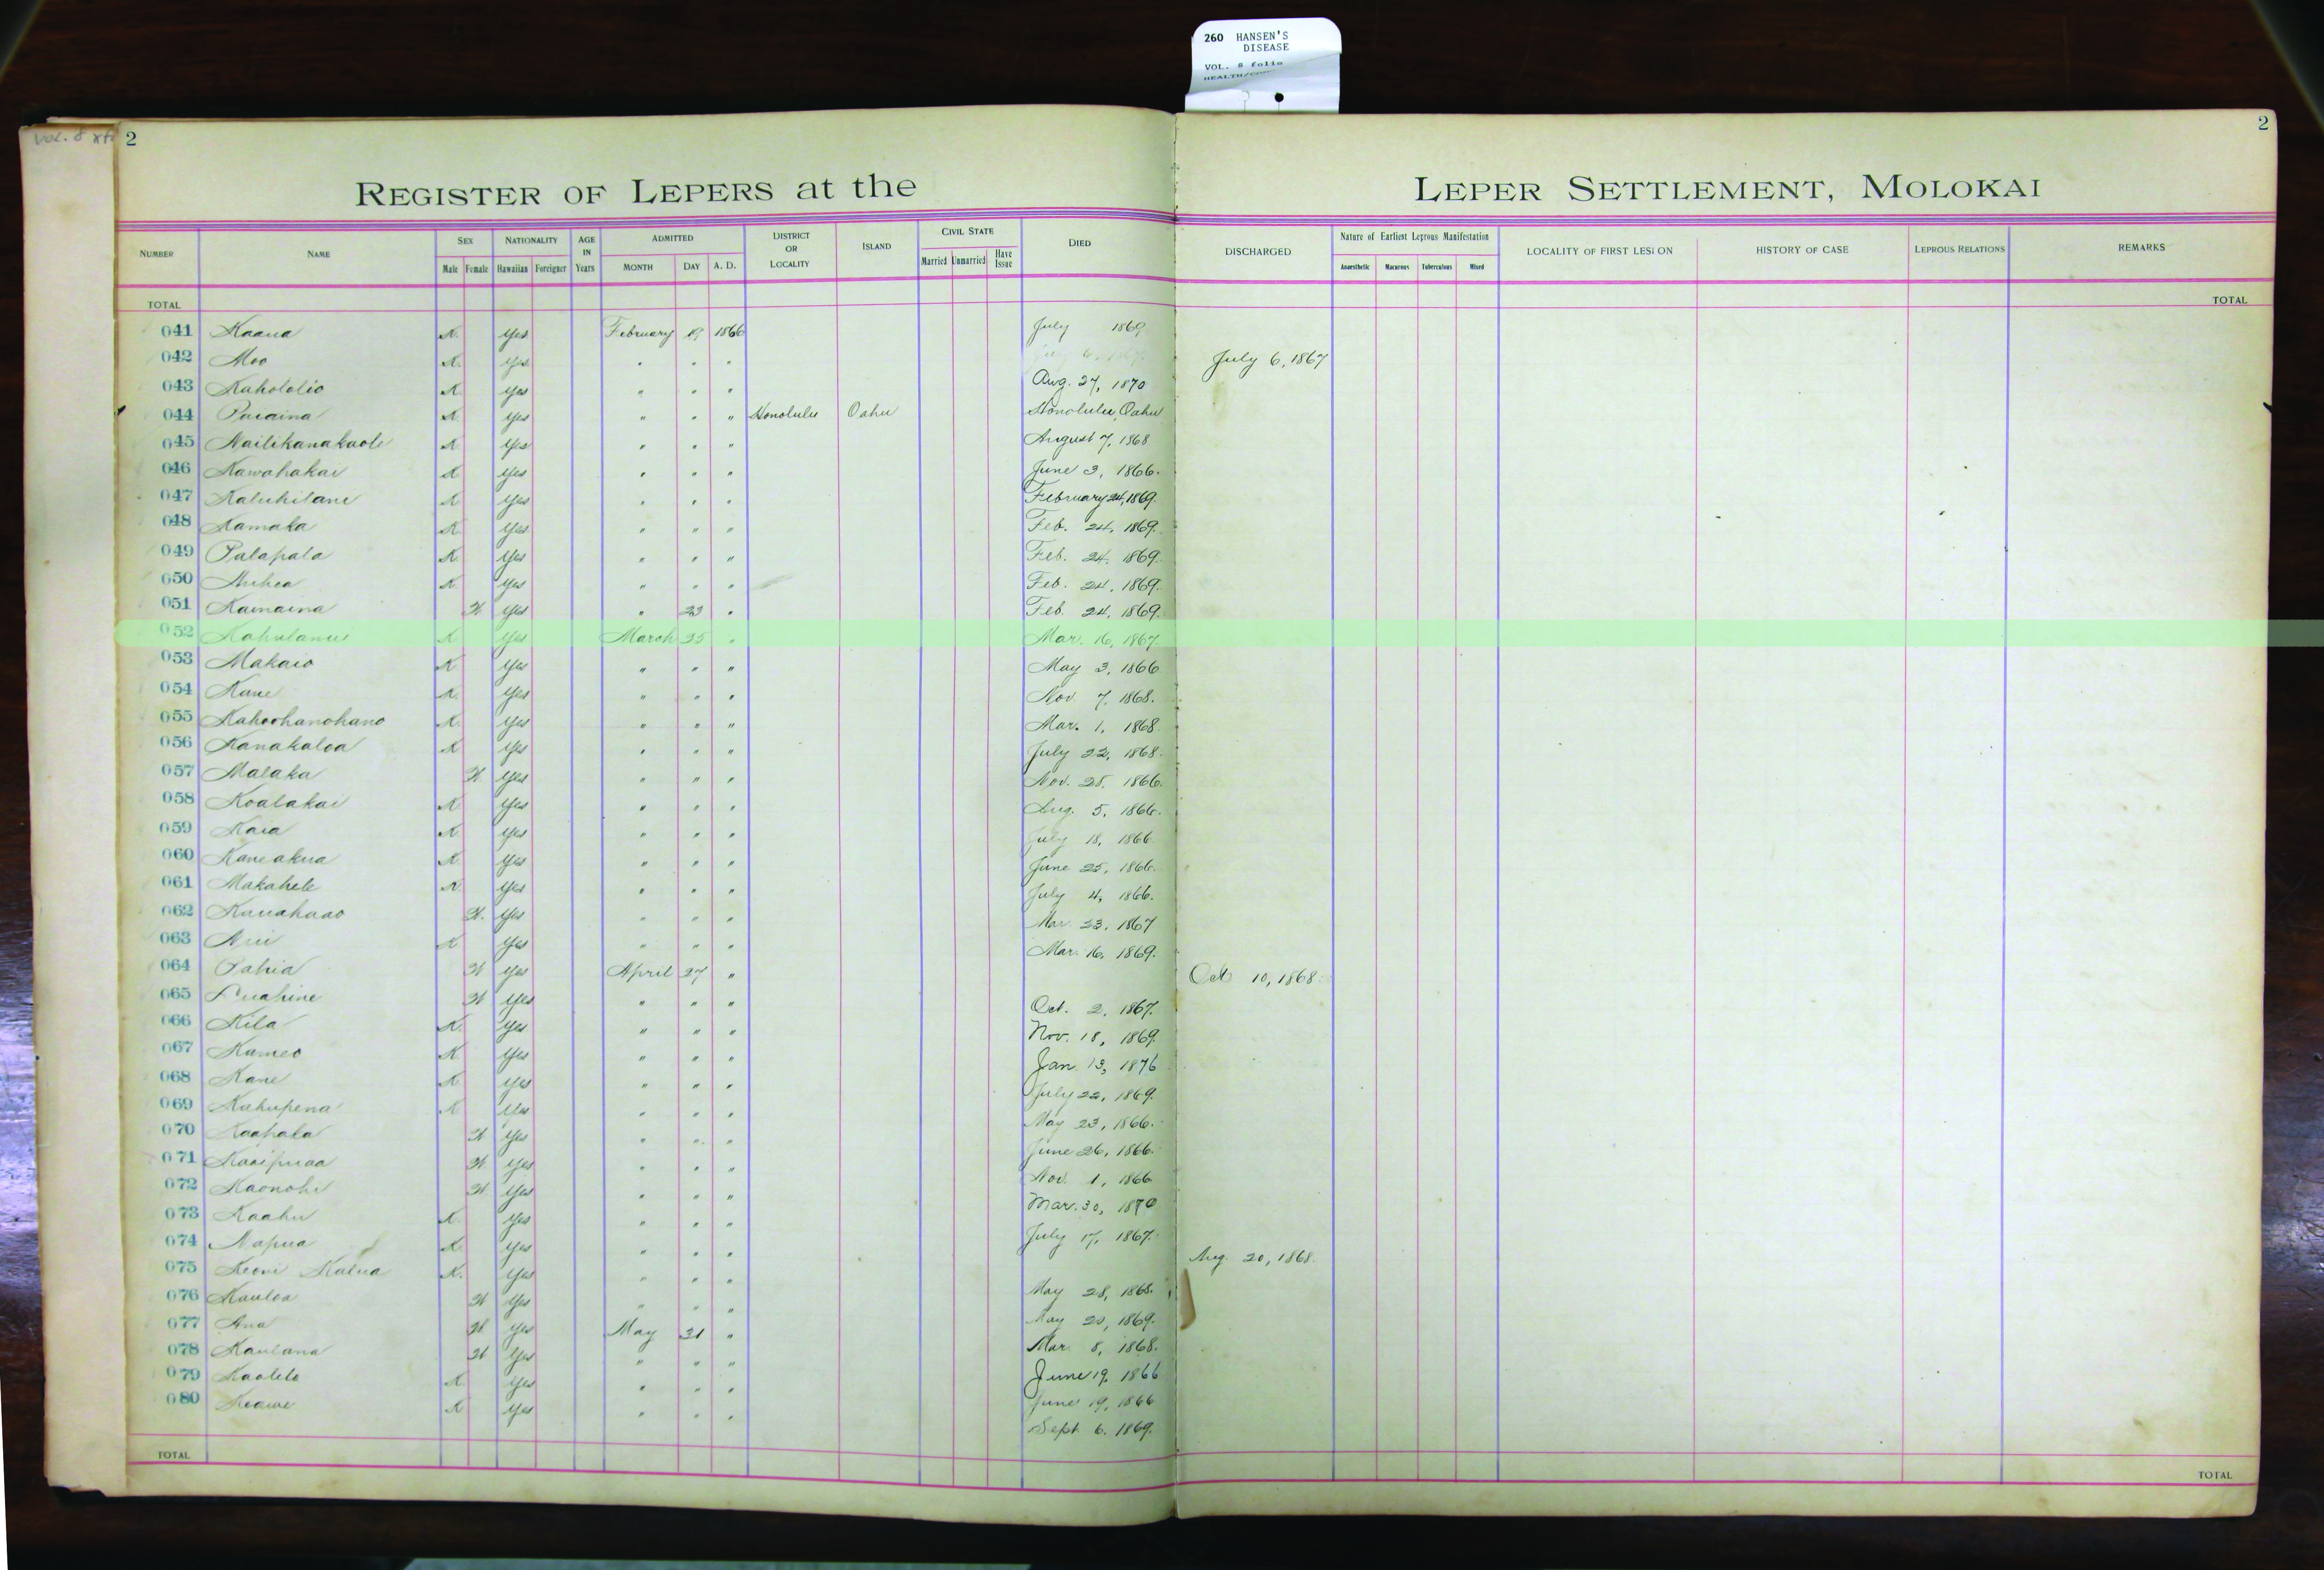 260 HANSEN'S
DISEASE
VOL. 8 folio
Vol. 8
2
2
REGISTER OF LEPERS at the LEPER SETTLEMENT, MOLOKAI
NUMBER NAME SEX NATIONALITY AGE IN Years ADMITTED DISTRICT OR LOCALITY ISLAND CIVIL STATE DIED DISCHARGED Nature of Earliest Leprous Manifestation LOCALITY OF FIRST LESION HISTORY OF CASE LEPROUS RELATIONS REMARKS
Male Female Hawaiian Foreigner MONTH DAY A. D. Married Unmarried Have Issue Anaesthetic Macurous Tuberculous Mixed
TOTAL TOTAL
041 Kaaua K. Yes February 19 1866 July 1869
042 Moo K. Yes " " " July 6, 1867
043 Kahololio K. Yes " " " Aug. 27, 1870
044 Paiaina K. Yes " " " Honolulu Oahu Honolulu, Oahu
045 Nailikanakaole K Yes " " " August 7, 1868
046 Kawahakai K Yes " " " June 3, 1866.
047 Kaluhilani K Yes " " " February 24, 1869.
048 Kamaka K Yes " " " Feb. 24, 1869.
049 Palapala K. Yes " " " Feb. 24, 1869.
050 Auhea K. Yes " " " Feb. 24, 1869.
051 Kamaina W. Yes " 23 " Feb. 24, 1869.
052 K Yes March 25 " Mar. 16, 1867
053 Makaio K Yes " " " May 3, 1866
054 Kane K. Yes " " " Nov. 7, 1868.
055 Kahoohanohano K. Yes " " " Mar. 1, 1868.
056 Kanakaloa K Yes " " " July 22, 1868.
057 Malaka W Yes " " " Nov. 28, 1866.
058 Koalakai K Yes " " " Aug. 5, 1866.
059 Kaia K. Yes " " " July 18, 1866.
060 Kaneakua K. Yes " " " June 25, 1866.
061 Makahele K. Yes " " " July 4, 1866.
062 Kauahaao W. Yes " " " Mar. 23, 1867
063 K Yes " " " Mar. 16, 1869.
064 Pahia W Yes April 27 " Oct 10, 1868.
065 Puahine W Yes " " " Oct. 2, 1867.
066 Kila K. Yes " " " Nov. 18, 1869.
067 Kameo K Yes " " " Jan. 13, 1876
068 Kane K Yes " " " July 22, 1869.
069 Kahupena K Yes " " " May 23, 1866.
070 Kaahala W Yes " " " June 26, 1866.
071 Kaaipuaa W. Yes " " " Nov. 1, 1866
072 Kaonohi W Yes " " " Mar. 30, 1870
073 Kaahu K. Yes " " " July 17, 1867.
074 Napua K Yes " " " Aug. 20, 1868.
075 Keoni Kalua K. Yes " " " May 28, 1868.
076 Kauloa W Yes " " " May 20, 1869.
077 Ana W. Yes May 31 " Mar. 8, 1868.
078 Kaulana W Yes " " " June 19, 1866
079 Kaolelo K Yes " " " June 19, 1866
080 Keawe K Yes " " " Sept. 6, 1869.
TOTAL TOTAL